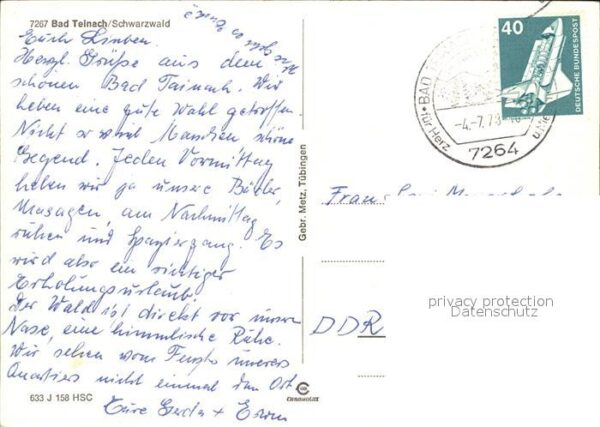 7267 Bad Teinach/Schwarzwald
Euch Lieben.
Herzl. Grüße aus dem
schönen Bad Tainach. Wir
haben eine gute Wahl getroffen.
Nicht so viel Maschen schöne
Gegend. Jeden Vormittag
haben wir ja unsere Bäder,
Masagen, am Nachmittag
ruhen und Spaziergang. Es
wird also ein richtiger
Erholungsurlaub.
Der Wald ist direkt vor unsere
Nase, eine himmlische Ruhe.
Wir sehen vom Fenster unseres
Quartiers nicht einmal den Ort
Eure Gerda + Erwin
633 J 158 HSC
Gebr. Metz, Tübingen
40
DEUTSCHE BUNDESPOST
BAD
-4.-7.7
im Herz
7264
Frau
DDR
privacy protection
Datenschutz